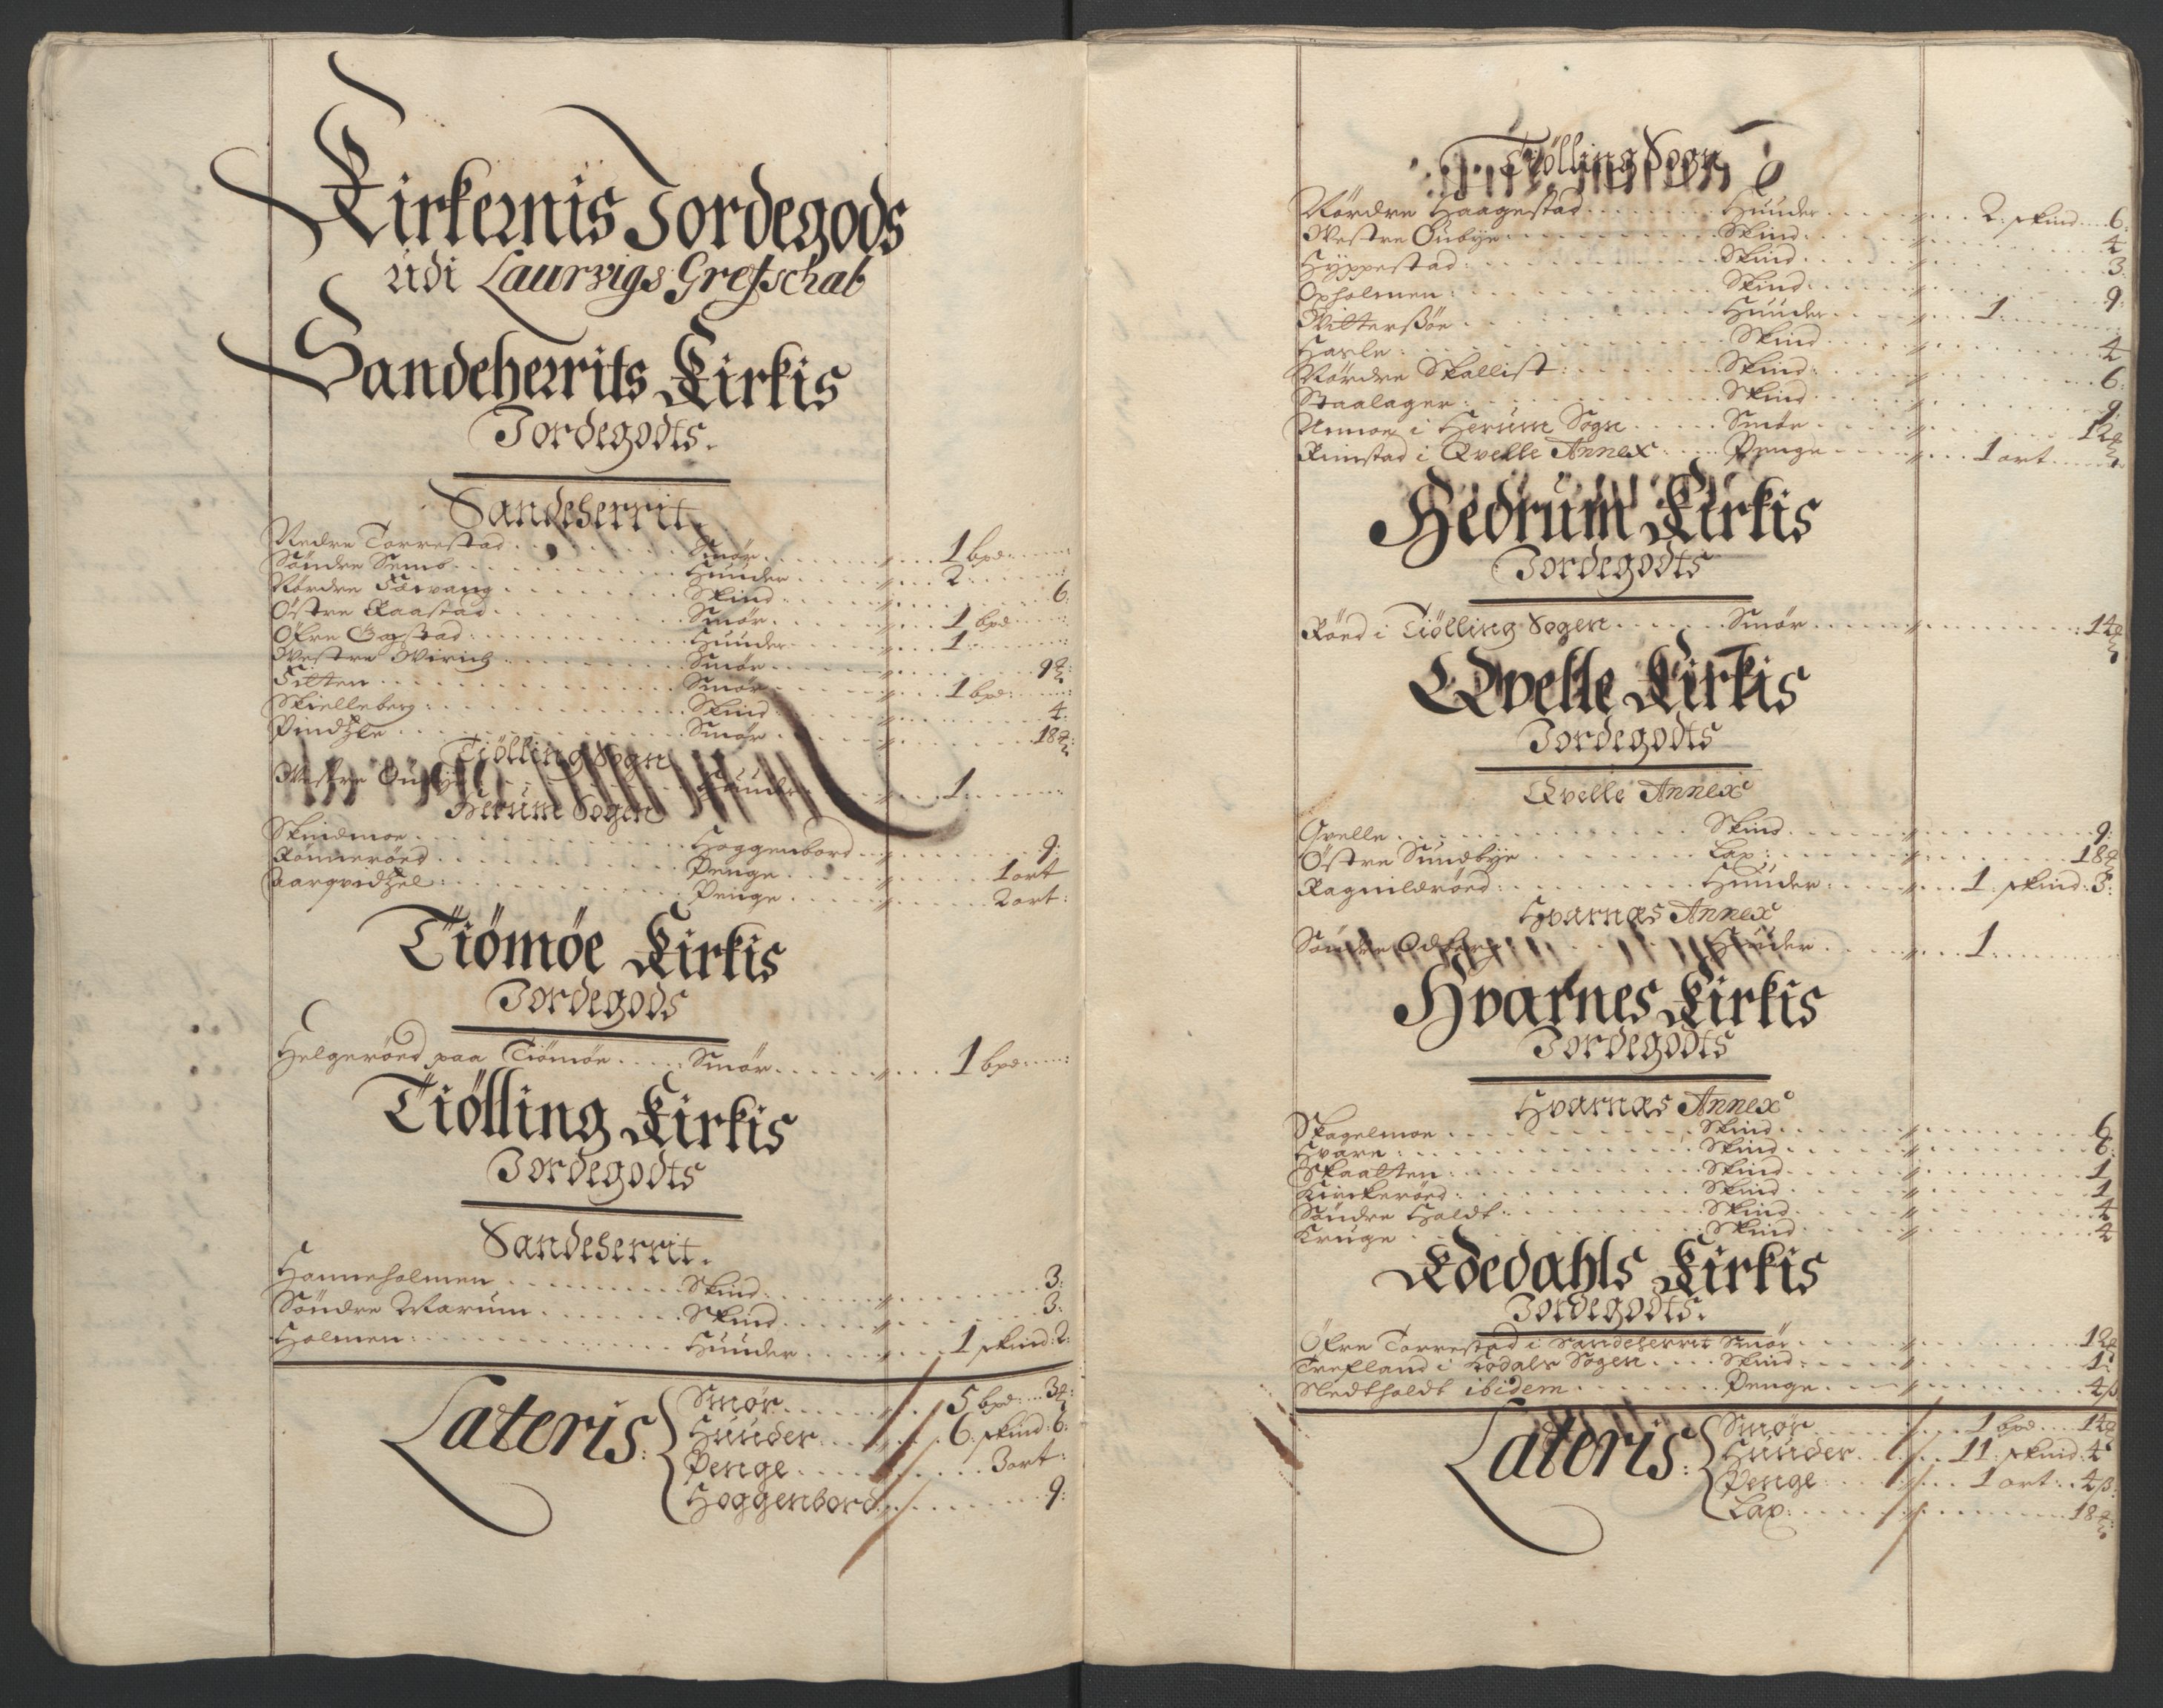 Kirkernis Jordegods
udi Laurvigs Grefschab
Sandeherrits Kirkis
Jordegodts.
Sandeherrit.
Nedre Torrestad Smör 1 bpd:
Söndre Semb Huuder 2
Nördre Fevang Skind 6:
Östre Raastad Smör 1 bpd
Öfre Gogstad Huuder 1
Westre Wirich Smör 9
Filtten Smör 1 bpd:
Skielleberg Skind 4:
Vindhle Smör 18
Tiölling Sogn
Westre Oubye Huuder 1
Herum Sogen
Skindmoe Hoggenbord 9:
Rönneröed Penge 1 ort
Penge 2 ort:
Tiömöe Kirkis
Jordegods
Helgeröed paa Tiömöe Smör 1 bpd:
Tiölling Kirkis
Jordegodts
Sandeherrit.
Hanneholmen Skind 3:
Söndre Warum Skind 3:
Holmen: Huuder 1 skind: 2:
Lateris:
Smör 5 bpd: 3
Huuder 6: skind: 6:
Penge 3 ort:
Hoggenbord 9:
Tiölling Sogn
Nördre Haagestad Huuder 2: skind 6:
Westre Oubye Skind 4
Hyppestad: Skind 3:
Oxholmen: Skind 9:
Wittersöe Huuder 1:
Hasle: Skind 4
Nördre Skallist: Skind 6:
Staalager: Skind 9
Nemoe i Herum Sogn Smör 12
Rimstad i Qvelle Annex Penge 1 ort
Hedrum Kirkis
Jordegodts
Röed i Tiölling Sogen Smör 14
Qvelle Kirkis
Jordegodts
Qvelle Annex
Qvelle Skind 9:
Östre Sundbye Lax: 18
Ragnildröed: Huuder: 1: skind: 3:
Hvarnæs Annex
Söndre Odberg Huuder 1:
Hvarnes Kirkis
Jordegodts
Hvarnæs Annex
Skagelmoe Skind 6
Hvare: Skind 6:
Skaatten: Skind 1
Kirckeröed: Skind 1
Söndre Holdt: Skind 4
Kruge Skind 4
Jordegodts.
Öfre Torrestad i Sandeherrit Smör 12
Trefland i Kodals Sogen Skind: 1:
Sledtholdt ibidem Penge 4 ß
Lateris:
Smör 1 bpd 14
Huuder 11: skind: 4
Penge 1 ort: 4 ß:
Lax: 18